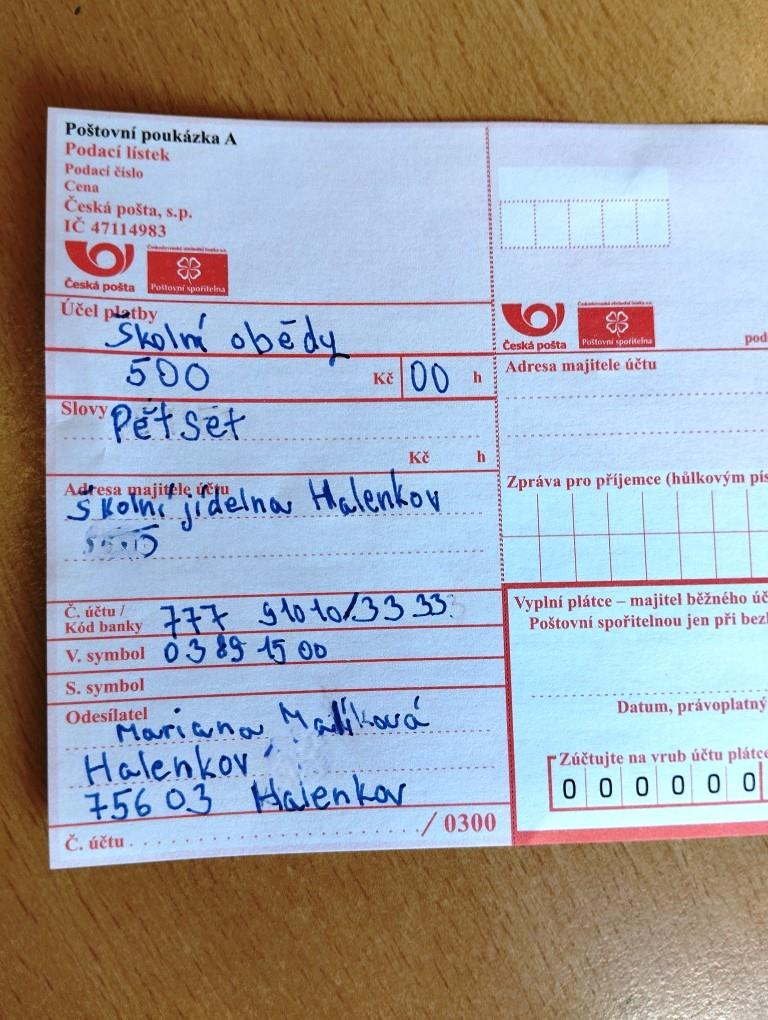 Poštovní poukázka A
Podací lístek
Podací číslo
Cena
Česká pošta, s.p.
IČ 47114983
Česká pošta
Poštovní spořitelna
Účel platby
Školní obědy
500 Kč 00 h
Slovy
Pětset
Kč h
Adresa majitele účtu
Školní jídelna Halenkov
Č. účtu /
Kód banky 777 91010/3333
V. symbol 03891500
S. symbol
Odesílatel
Mariana Malíková
Halenkov
75603 Halenkov
Č. účtu / 0300
Česká pošta
Poštovní spořitelna
pod
Adresa majitele účtu
Zpráva pro příjemce (hůlkovým pís
Vyplní plátce – majitel běžného úč
Poštovní spořitelnou jen při bezh
Datum, právoplatný
Zúčtujte na vrub účtu plátce
0 0 0 0 0 0